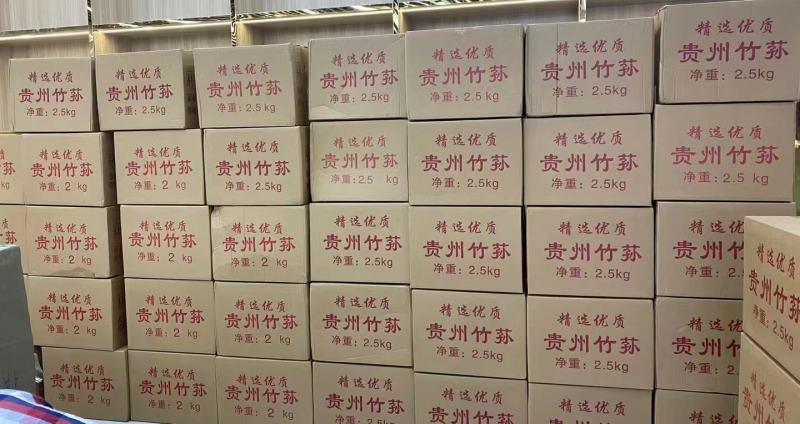 精选优质
贵州竹荪
净重：2.5kg
精选优质
贵州竹荪
净重：2.5kg
精选优质
贵州竹荪
净重：2.5 kg
精选优质
贵州竹荪
净重：2.5kg
精选优质
贵州竹荪
净重：2.5 kg
精选优质
贵州竹荪
净重：2.5kg
精选优质
贵州竹荪
净重：2.5kg
精选优质
贵州竹荪
净重：2 kg
精选优质
贵州竹荪
净重：2 kg
精选优质
贵州竹荪
净重：2.5kg
精选优质
贵州竹荪
净重：2.5 kg
精选优质
贵州竹荪
净重：2.5kg
精选优质
贵州竹荪
净重：2.5kg
精选优质
贵州竹荪
净重：2.5 kg
精选优质
贵州竹荪
净重：2 kg
精选优质
贵州竹荪
净重：2 kg
精选优质
贵州竹荪
净重：2 kg
精选优质
贵州竹荪
净重：2.5kg
精选优质
贵州竹荪
净重：2.5kg
精选优质
贵州竹荪
净重：2.5kg
精选优质
贵州竹荪
净重：2.5
精选优质
贵州竹荪
净重：2.5kg
精选优质
贵州竹荪
净重：2 kg
精选优质
贵州竹荪
净重：2 kg
精选优质
贵州竹荪
净重：2 kg
精选优质
贵州竹荪
净重：2.5kg
精选优质
贵州竹荪
净重：2.5kg
精选优质
贵州竹荪
净重：2.5kg
精选优质
贵州竹荪
净重：2.5
精选优质
贵州竹荪
净重：2 kg
精选优质
贵州竹荪
净重：2 kg
精选优质
贵州竹荪
净重：2 kg
精选优质
贵州竹荪
精选优质
贵州竹荪
精选优质
贵州竹荪
精选优质
贵州竹